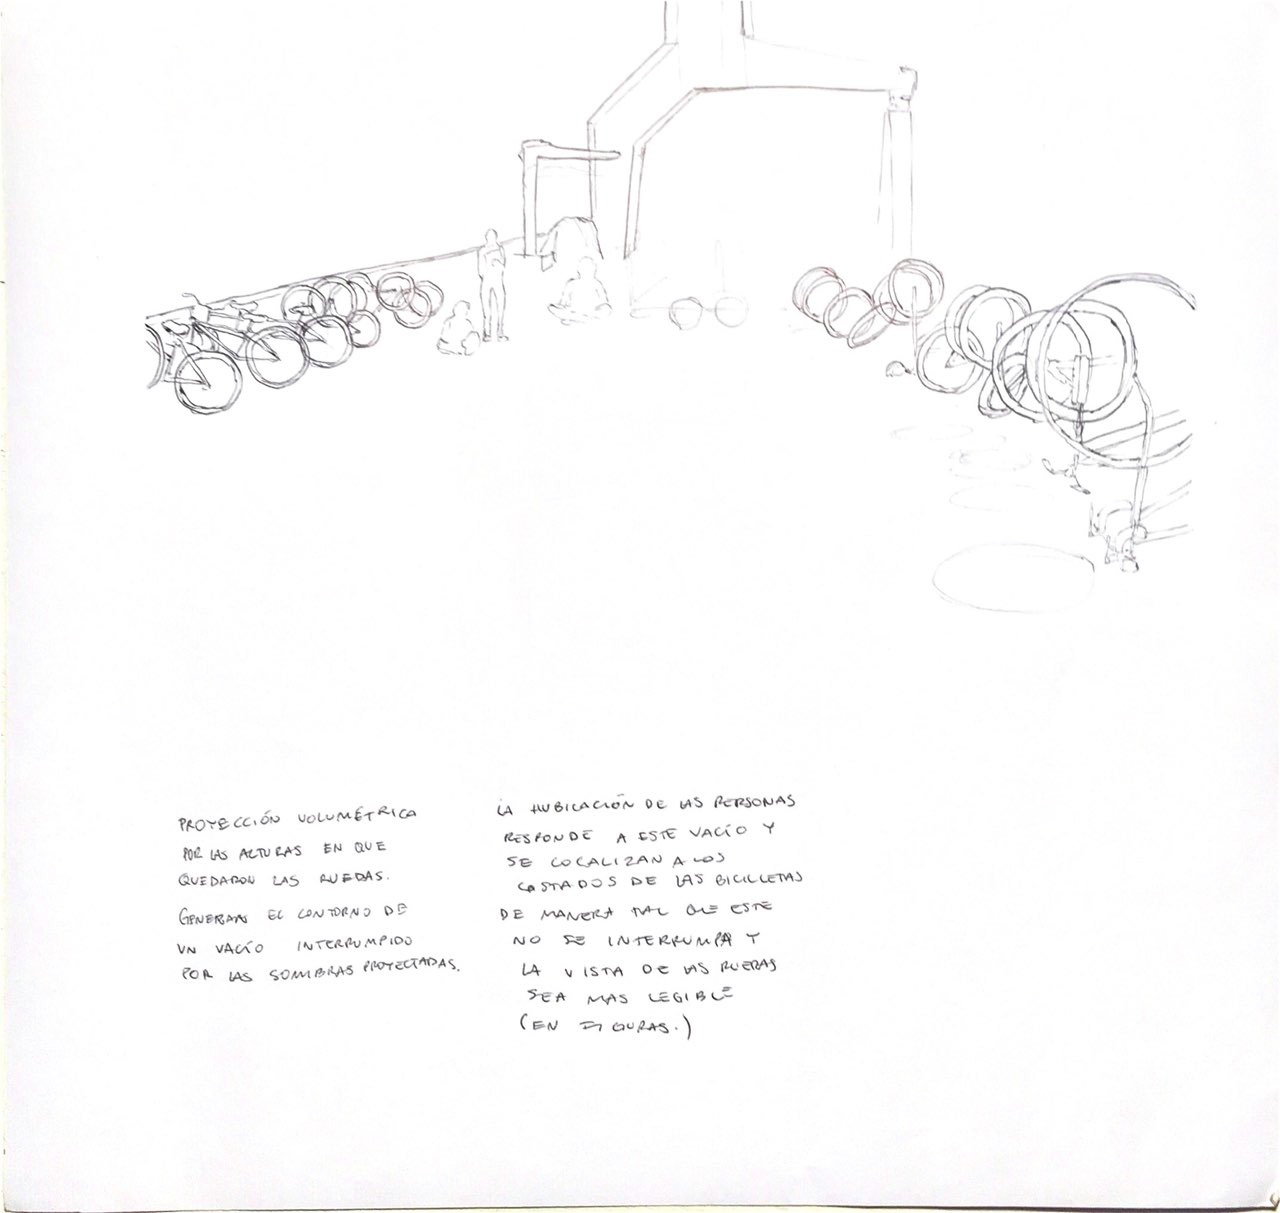 PROYECCIÓN VOLUMÉTRICA
POR LAS ALTURAS EN QUE
QUEDARON LAS RUEDAS.
GENERAN EL CONTORNO DE
UN VACÍO INTERRUMPIDO
POR LAS SOMBRAS PROYECTADAS.
LA HUBICACIÓN DE LAS PERSONAS
RESPONDE A ESTE VACÍO Y
SE LOCALIZAN A LOS
COSTADOS DE LAS BICICLETAS
DE MANERA TAL QUE ESTE
NO SE INTERRUMPA Y
LA VISTA DE LAS RUEDAS
SEA MAS LEGIBLE
(EN FIGURAS.)